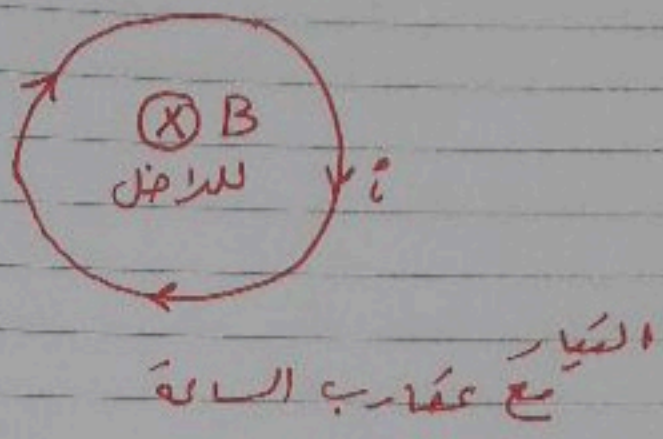 ⓧ B
للداخل
i
التيار
مع عقارب الساعة